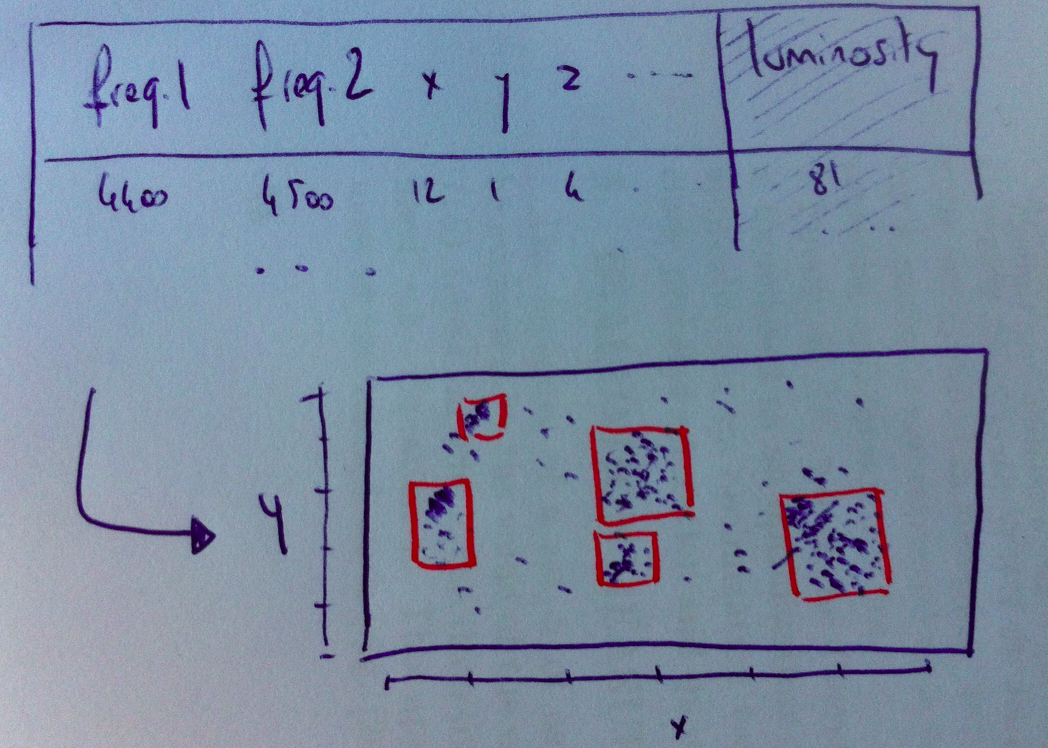 freq.1 freq.2 x y z ---- luminosity
4400 4500 12 1 4 . .. 81
. ..
. . .
y
x